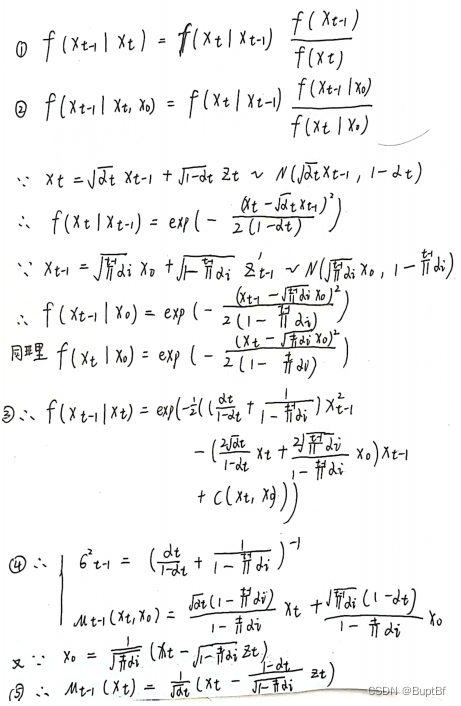 ① f(xt-1|xt) = f(xt|xt-1) f(xt-1)/f(xt)
② f(xt-1|xt, x0) = f(xt|xt-1) f(xt-1|x0)/f(xt|x0)
∵ xt = √αt xt-1 + √(1-αt) zt ~ N(√αt xt-1, 1-αt)
∴ f(xt|xt-1) = exp(- (xt-√αt xt-1)²/2(1-αt))
∵ xt-1 = √(t-1∏αi) x0 + √(1-t-1∏αi) z't-1 ~ N(√(t-1∏αi) x0, 1-t-1∏αi)
∴ f(xt-1|x0) = exp(- (xt-1-√(t-1∏αi) x0)²/2(1-t-1∏αi))
同理 f(xt|x0) = exp(- (xt-√(t∏αi) x0)²/2(1-t∏αi))
③∴ f(xt-1|xt) = exp(-½((αt/(1-αt) + 1/(1-t-1∏αi)) x²t-1
- (2√αt/(1-αt) xt + 2√(t-1∏αi)/(1-t-1∏αi) x0) xt-1
+ C(xt, x0)))
④∴ { б²t-1 = (αt/(1-αt) + 1/(1-t-1∏αi))⁻¹
μt-1(xt,x0) = √αt(1-t-1∏αi)/(1-t∏αi) xt + √(t-1∏αi)(1-αt)/(1-t∏αi) x0
又∵ x0 = 1/√(t∏αi) (xt-√(1-t∏αi) zt)
⑤∴ μt-1(xt) = 1/√αt (xt - (1-αt)/√(1-t∏αi) zt)
CSDN @BuptBf